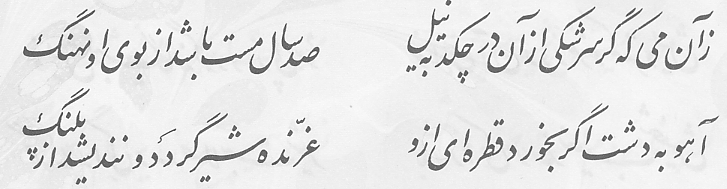 زآن می که گر سرشکی از آن در چکد به نیل صد سال مست باشد از بوی او نهنگ
آهو به دشت اگر بخورد قطره‌ای ازو غرّنده شیر گردد و نندیشد از پلنگ